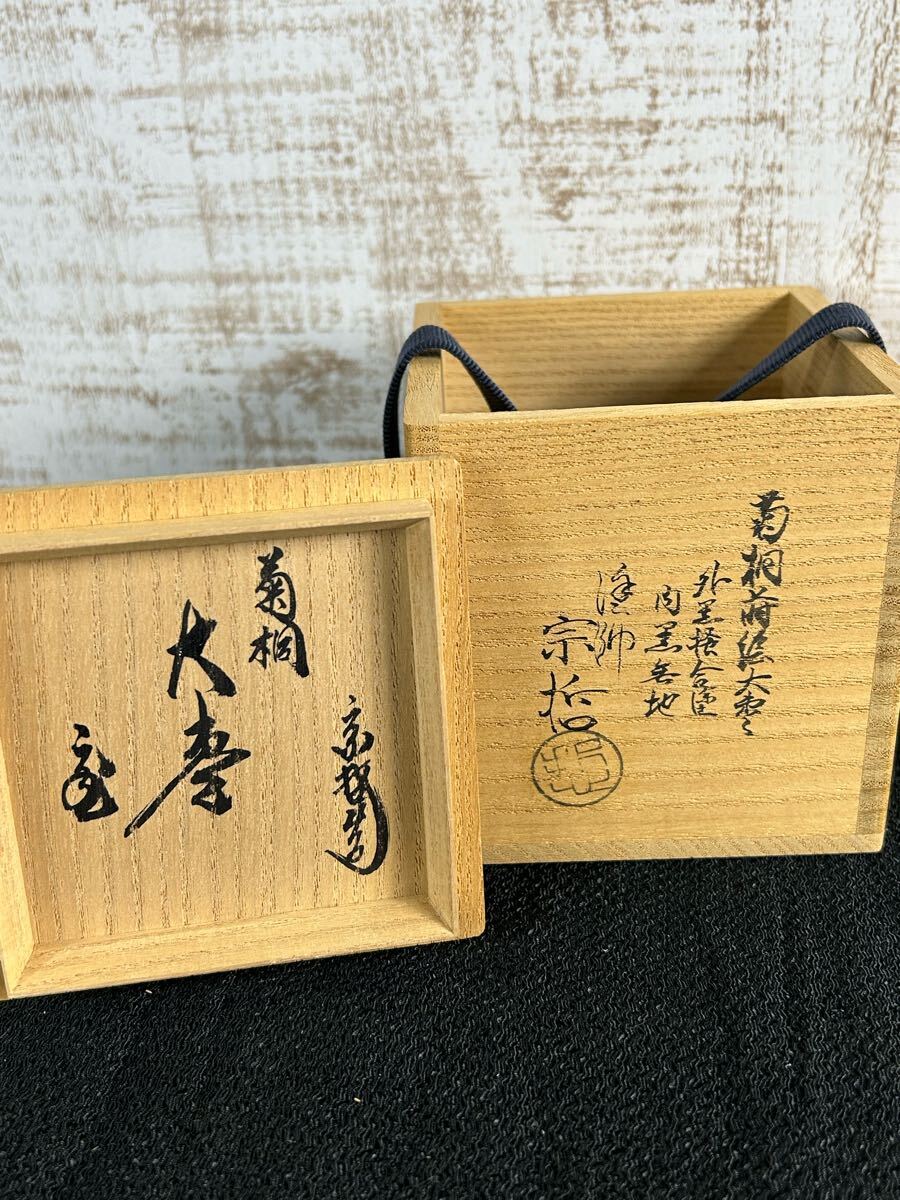 菊桐
大棗
宗哲造
菊桐蒔絵大棗
外黒掻合塗
内黒無地
塗師
宗哲